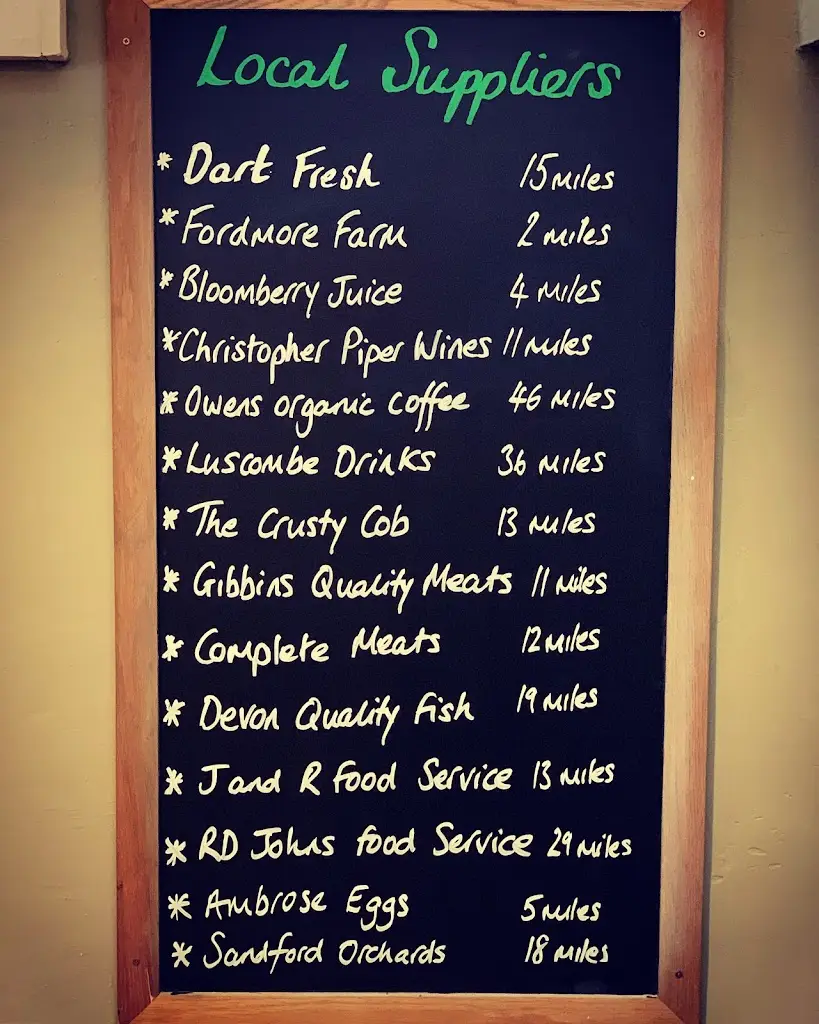 Local Suppliers
* Dart Fresh 15 miles
* Fordmore Farm 2 miles
* Bloomberry Juice 4 miles
* Christopher Piper Wines 11 miles
* Owens organic coffee 46 miles
* Luscombe Drinks 36 miles
* The Crusty Cob 13 miles
* Gibbins Quality Meats 11 miles
* Complete Meats 12 miles
* Devon Quality Fish 19 miles
* J and R Food Service 13 miles
* RD Johns food Service 29 miles
* Ambrose Eggs 5 miles
* Sandford Orchards 18 miles